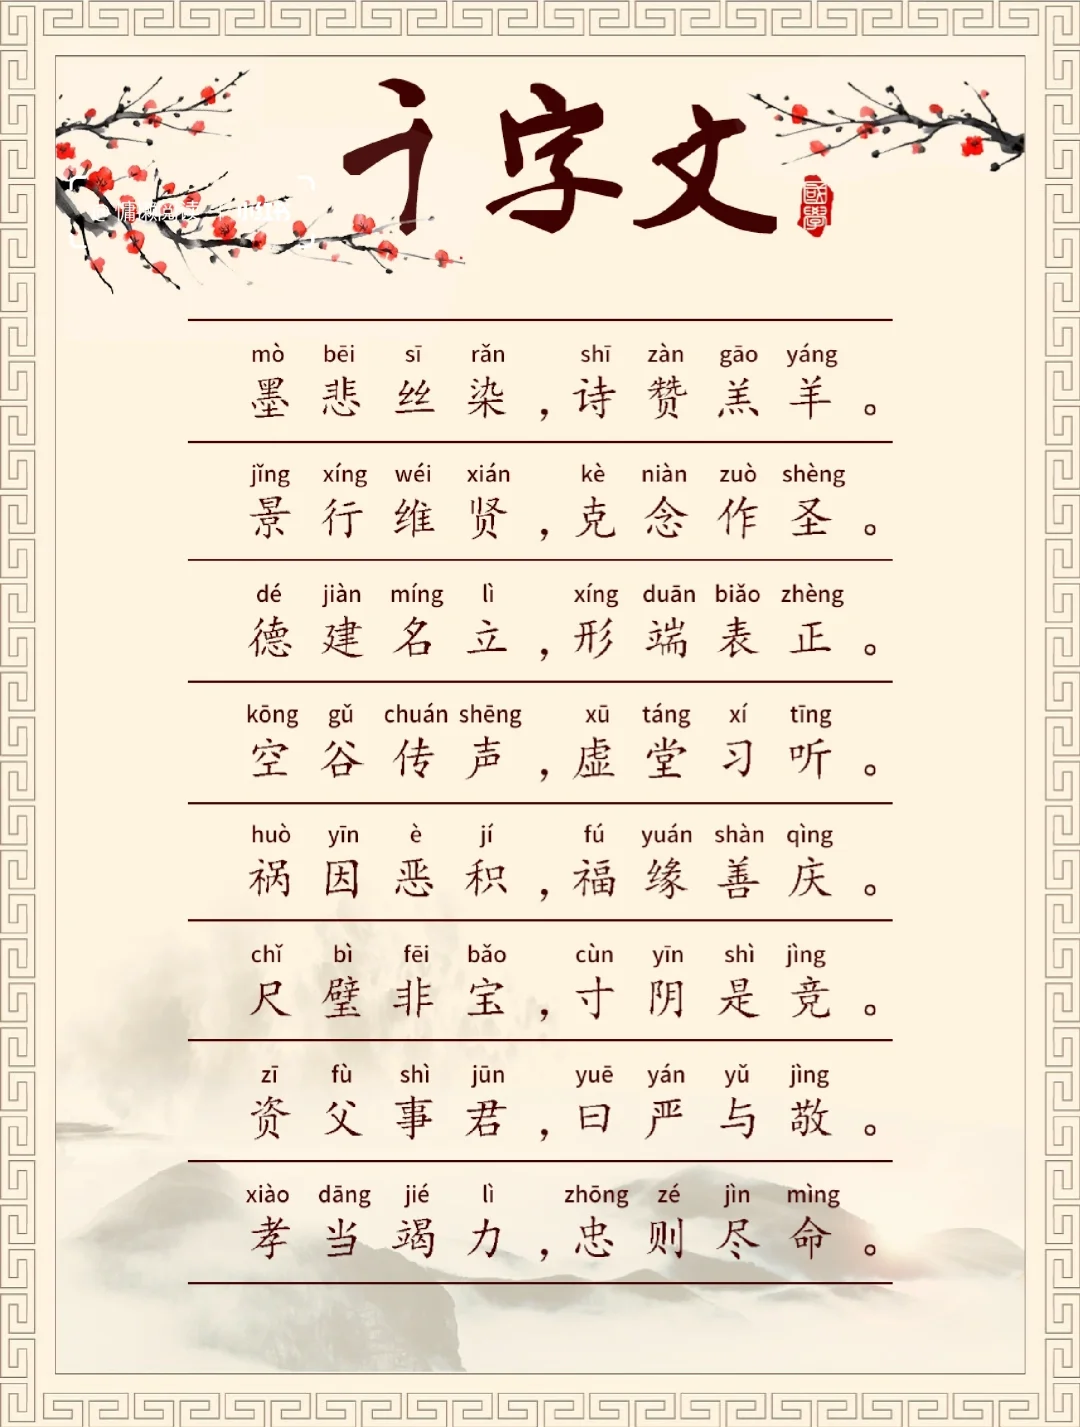 千字文
國學
mò bēi sī rǎn shī zàn gāo yáng
墨悲丝染，诗赞羔羊。
jǐng xíng wéi xián kè niàn zuò shèng
景行维贤，克念作圣。
dé jiàn míng lì xíng duān biǎo zhèng
德建名立，形端表正。
kōng gǔ chuán shēng xū táng xí tīng
空谷传声，虚堂习听。
huò yīn è jí fú yuán shàn qìng
祸因恶积，福缘善庆。
chǐ bì fēi bǎo cùn yīn shì jìng
尺璧非宝，寸阴是竞。
zī fù shì jūn yuē yán yǔ jìng
资父事君，曰严与敬。
xiào dāng jié lì zhōng zé jìn mìng
孝当竭力，忠则尽命。